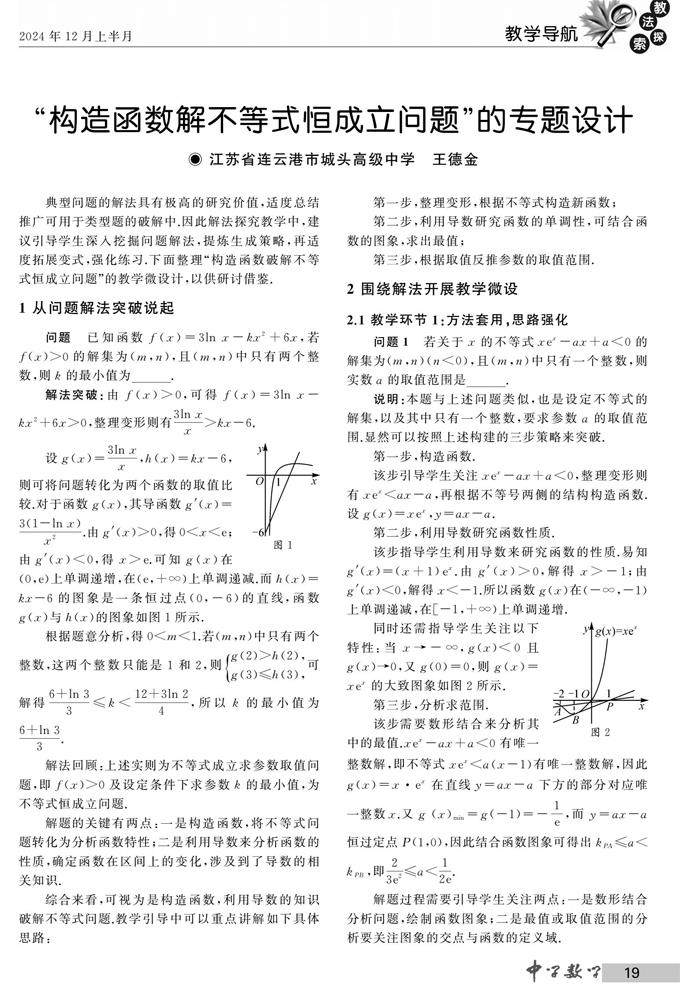 2024 年 12 月上半月
教学导航
教法探索
“构造函数解不等式恒成立问题”的专题设计
◉ 江苏省连云港市城头高级中学 王德金
典型问题的解法具有极高的研究价值,适度总结
推广可用于类型题的破解中.因此解法探究教学中,建
议引导学生深入挖掘问题解法,提炼生成策略,再适
度拓展变式,强化练习.下面整理“构造函数破解不等
式恒成立问题”的教学微设计,以供研讨借鉴.
1 从问题解法突破说起
问题 已知函数 f(x)=3ln x-kx²+6x,若
f(x)>0 的解集为(m,n),且(m,n)中只有两个整
数,则 k 的最小值为______.
解法突破:由 f(x)>0,可得 f(x)=3ln x-
kx²+6x>0,整理变形则有 3ln x/x>kx-6.
设 g(x)=3ln x/x,h(x)=kx-6,
则可将问题转化为两个函数的取值比
较.对于函数 g(x),其导函数 g′(x)=
3(1-ln x)/x².由 g′(x)>0,得 0<x<e;
由 g′(x)<0,得 x>e.可知 g(x)在
y
O 1 x
-6
图 1
(0,e)上单调递增,在(e,+∞)上单调递减.而 h(x)=
kx-6 的图象是一条恒过点(0,-6)的直线,函数
g(x)与 h(x)的图象如图 1 所示.
根据题意分析,得 0<m<1.若(m,n)中只有两个
整数,这两个整数只能是 1 和 2,则{g(2)>h(2), g(3)≤h(3),可
解得 (6+ln 3)/3≤k<(12+3ln 2)/4,所以 k 的最小值为
(6+ln 3)/3.
解法回顾:上述实则为不等式成立求参数取值问
题,即 f(x)>0 及设定条件下求参数 k 的最小值,为
不等式恒成立问题.
解题的关键有两点:一是构造函数,将不等式问
题转化为分析函数特性;二是利用导数来分析函数的
性质,确定函数在区间上的变化,涉及到了导数的相
关知识.
综合来看,可视为是构造函数,利用导数的知识
破解不等式问题.教学引导中可以重点讲解如下具体
思路:
第一步,整理变形,根据不等式构造新函数;
第二步,利用导数研究函数的单调性,可结合函
数的图象,求出最值;
第三步,根据取值反推参数的取值范围.
2 围绕解法开展教学微设
2.1 教学环节 1:方法套用,思路强化
问题 1 若关于 x 的不等式 xeˣ-ax+a<0 的
解集为(m,n)(n<0),且(m,n)中只有一个整数,则
实数 a 的取值范围是______.
说明:本题与上述问题类似,也是设定不等式的
解集,以及其中只有一个整数,要求参数 a 的取值范
围.显然可以按照上述构建的三步策略来突破.
第一步,构造函数.
该步引导学生关注 xeˣ-ax+a<0,整理变形则
有 xeˣ<ax-a,再根据不等号两侧的结构构造函数.
设 g(x)=xeˣ,y=ax-a.
第二步,利用导数研究函数性质.
该步指导学生利用导数来研究函数的性质.易知
g′(x)=(x+1)eˣ.由 g′(x)>0,解得 x>-1;由
g′(x)<0,解得 x<-1.所以函数 g(x)在(-∞,-1)
上单调递减,在[-1,+∞)上单调递增.
同时还需指导学生关注以下
特性:当 x→-∞,g(x)<0 且
g(x)→0,又 g(0)=0,则 g(x)=
xeˣ 的大致图象如图 2 所示.
第三步,分析求范围.
该步需要数形结合来分析其
y g(x)=xeˣ
-2 -1 O 1
A B P x
图 2
中的最值.xeˣ-ax+a<0 有唯一
整数解,即不等式 xeˣ<a(x-1)有唯一整数解,因此
g(x)=x·eˣ 在直线 y=ax-a 下方的部分对应唯
一整数 x.又 g(x)ₘᵢₙ=g(-1)=-1/e,而 y=ax-a
恒过定点 P(1,0),因此结合函数图象可得出 k_PA≤a<
k_PB,即 2/3e²≤a<1/2e.
解题过程需要引导学生关注两点:一是数形结合
分析问题,绘制函数图象;二是最值或取值范围的分
析要关注图象的交点与函数的定义域.
中学数学 19